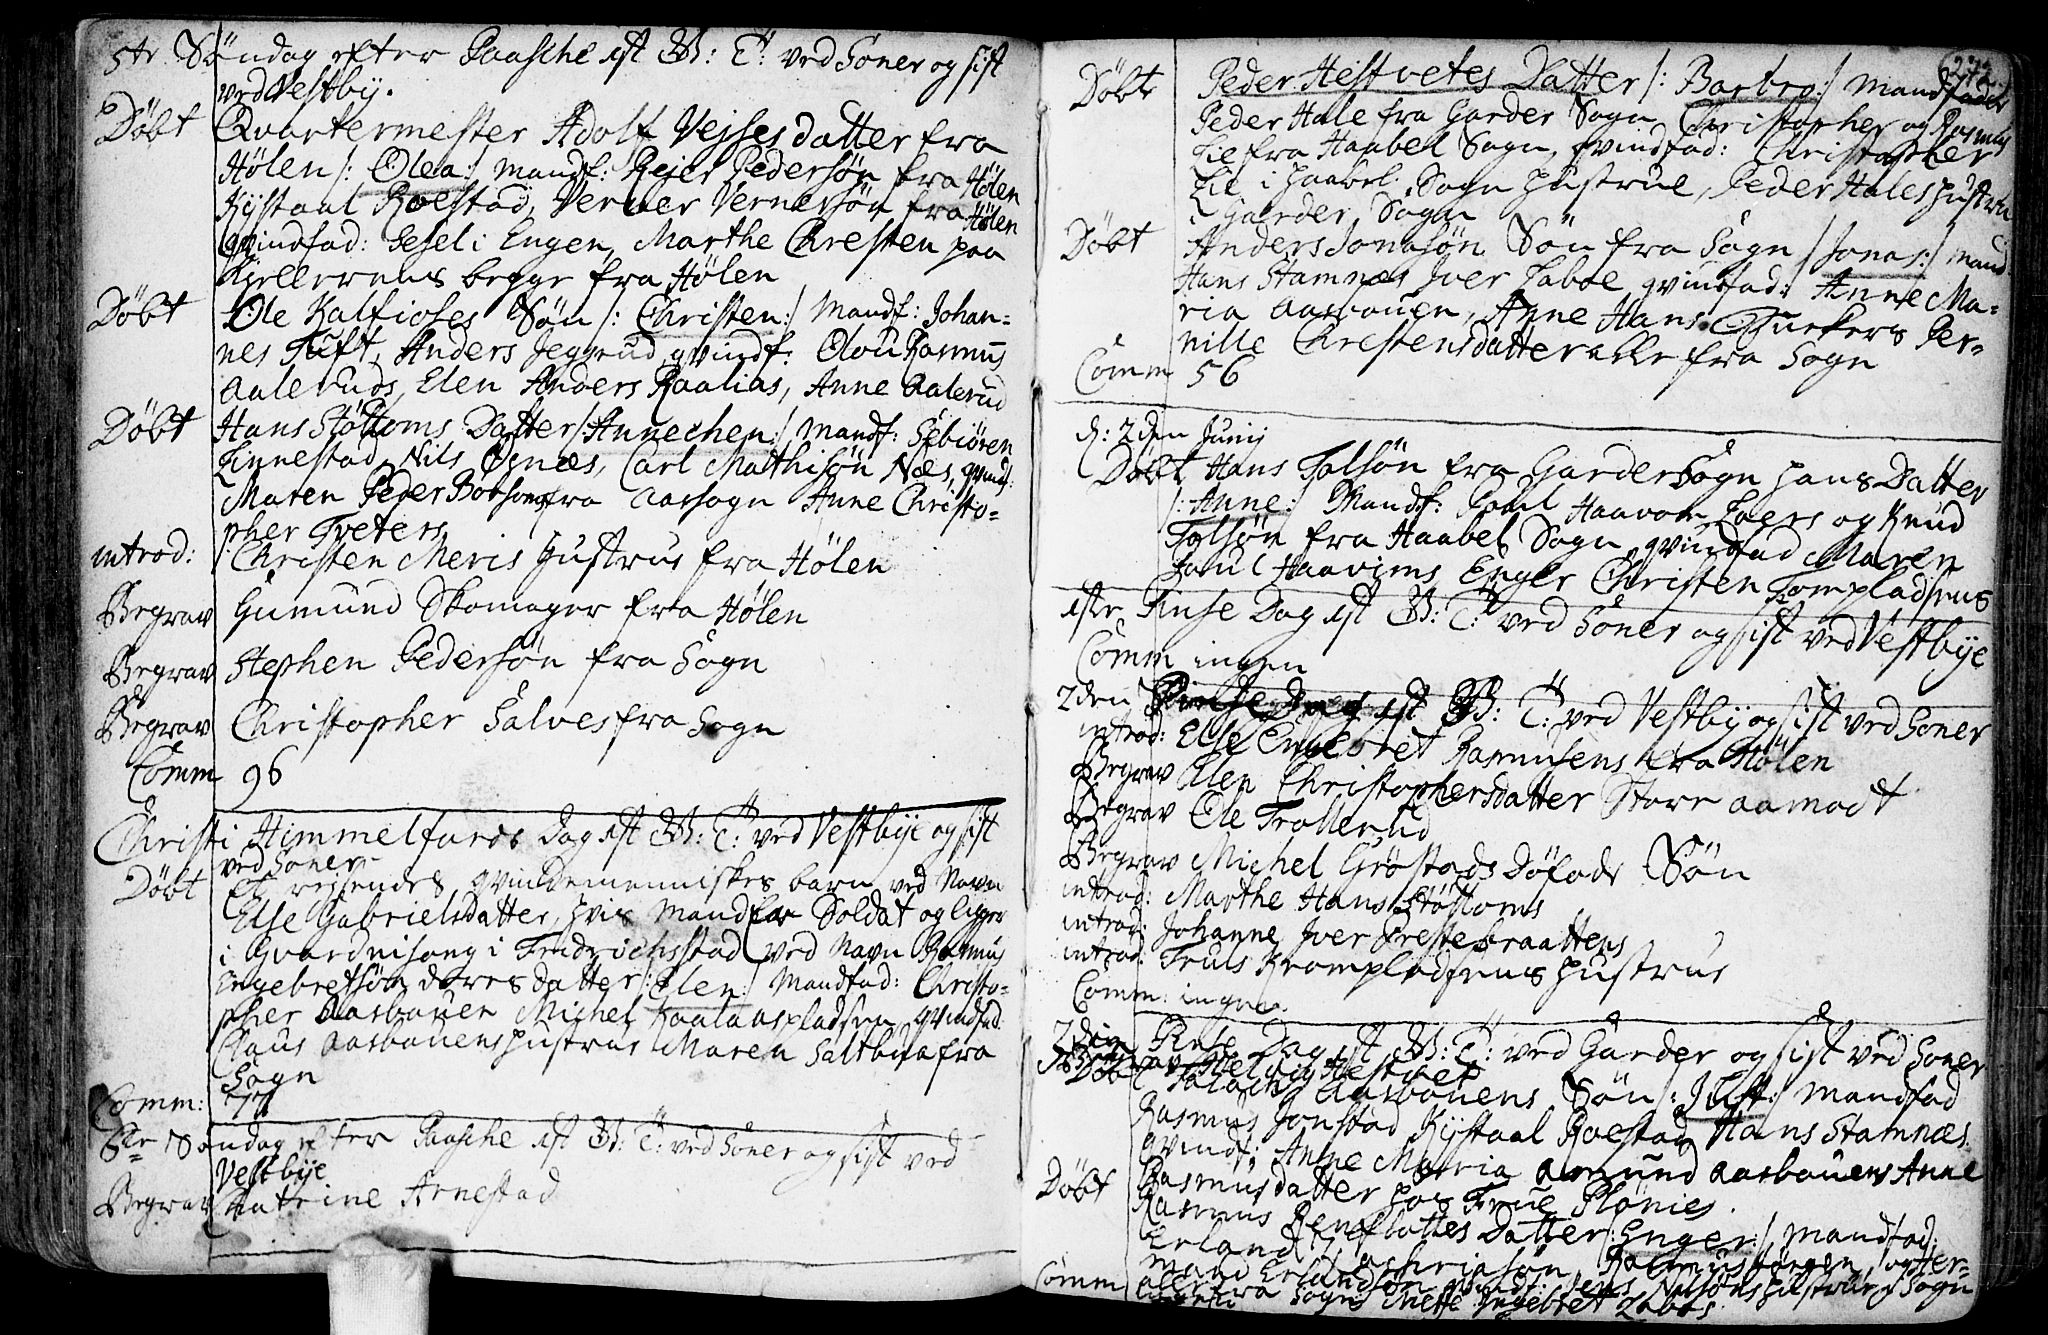 5te Söndag efter Paasche ist B: T: ved Soner og sist
ved Vestby.
Döbt Qvartermester Adolf Vejses datter fra
Hölen /: Olea :/ mandf: Reier Pedersön fra Hölen
Kystaal Roestad, Verner Vernersön fra Hölen
qvindfad: Sesel i Engen, Marthe Christen paa
Kjellerens begge fra Hölen
Döbt Ole Kalfioses Sön /: Christen :/ mandf: Johan=
nes Tuft, Anders Jeggrud qvindf: Olou Rasmus
Aaleruds, Elen Anders Raalias, Anne Aalerud
Döbt Hans Stöttoms Datter /: Annechen :/ mandf: Sebiören
Finnestad, Nils Osnæs, Carl Matthisön Næs, qvindf:
Maren Peder Botsons fra Aassogn Anne Christo=
pher Tveters
introd: Christen Meris Hustrue fra Hölen
Begrav Gumund Skomager fra Hölen
Begrav Stephen Pedersön fra Sogn
Begrav Christopher Salves fra Sogn
Comm 96
Christi Himmelfards Dag ist B: T: ved Vestbye og sist
ved Soner
Döbt Et rejsendes qvindemenniskes barn ved Navn
Else Gabrielsdatter, hvis Mand er Soldat og ligger
i Gvardnisong i Fridrichsstad ved Navn Rasmus
Engebretsön deres datter /: Elen :/ Mandfad: Christo=
pher Aasbauen Michel Kaalaaspladsen, qvindfad:
Claus Aasbauens hustrue Maren Saltbua fra
Sogn
Comm: 77
6te Söndag efter Paasche ist B: T: ved Soner og sist ved
Vestbye
Begrav Katrine Arnestad
272
Döbt Peder Hestvetes Datter /: Barbro :/ mandfader
Peder Hale fra Garder Sogn, Christopher og Rasmus
Lie fra Haabel Sogn, qvindfad: Christopher
Lie i Haabel Sogn hustrue, Peder Hales hustrue
i Garder Sogn
Döbt Anders Jonasön Sön fra Sogn /: Jonas :/ mand
Hans Stamnes Iver Laboe qvindfad: Anne Ma=
ria Aasbauen, Anne Hans Per=
nille Christensdatter alle fra Sogn
Comm 56
d: 2den Junij
Döbt Hans Tolsön fra Garder Sogn hans Datter
/: Anne :/ Mandf: Poul Haavom, Loers og Knud
Tolsön fra Haabel Sogn qvindfad Maren
Poul Haavims Enger Christen Tompladsens
1ste Pinse Dag ist B: T: ved Soner og sist ved Vestbye
Comm ingen
2den Pinse Dag ist B: T: ved Vestby og sist ved Soner
introd: Else Engebret Rasmusens fra Hölen
Begrav Elen Christophersdatter Store aamodt
Begrav Ole Trollerud
Begrav Michel Gröstads Döfods Sön
introd: Marthe Hans Stöttoms
introd: Johanne Iver Prestebraattens
introd: Truls Krompladsens hustrue
Comm: ingen.
2den Pinse Dag ist B: T: ved Garder og sist ved Soner
Begrav Helvig Hestvet
Döbt Aasbauens Sön /: Just :/ mandfad
Rasmus Jonstad Kystaal Roestad Hans Stamnæs.
qvindf: Anne Maria Amund Aasbauens Anne
Rasmusdatter hos Frue Plönies.
Döbt Rasmus Reneflottes Datter /: Enger :/ Mandfad:
Erland Rasmus Jörgen, og Her=
mand Erlandsön qvindf: Jens Nilsöns hustrue i Sogn
Comm alle fra Sogn Mette Engebret Labos.